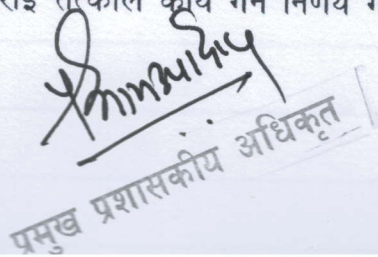 तत्काल कार्य गर्न निर्णय
प्रमुख प्रशासकीय अधिकृत